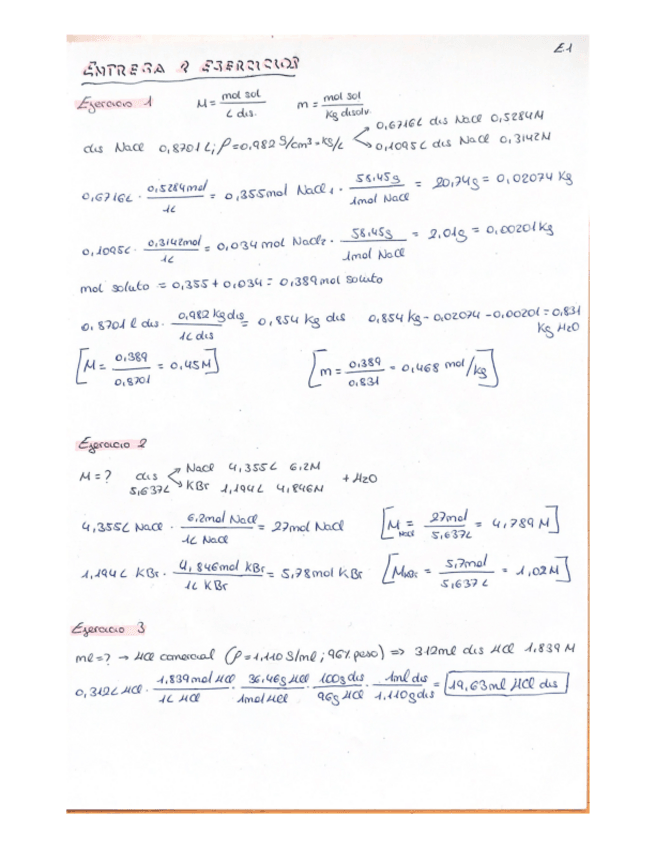 E1
ENTREGA 2 EJERCICIOS
Ejercicio 1 M = mol sol / L dis. m = mol sol / Kg disolv.
dis NaCl 0,8701 L; ρ = 0,982 g/cm³ = Kg/L
0,6716L dis NaCl 0,5284M
0,1095L dis NaCl 0,3142M
0,6716L · 0,5284mol / 1L = 0,355mol NaCl₁ · 58,45g / 1mol NaCl = 20,74g = 0,02074 Kg
0,1095L · 0,3142mol / 1L = 0,034 mol NaCl₂ · 58,45g / 1mol NaCl = 2,01g = 0,00201Kg
mol soluto = 0,355 + 0,034 = 0,389 mol soluto
0,8701 l dis · 0,982 Kg dis / 1L dis = 0,854 Kg dis 0,854 Kg - 0,02074 - 0,00201 = 0,831 Kg H2O
[M = 0,389 / 0,8701 = 0,45M] [m = 0,389 / 0,831 = 0,468 mol/kg]
Ejercicio 2
M = ? dis 5,637L NaCl 4,355L 6,2M
KBr 1,194L 4,846M + H2O
4,355L NaCl · 6,2mol NaCl / 1L NaCl = 27mol NaCl [M NaCl = 27mol / 5,637L = 4,789 M]
1,194L KBr · 4,846mol KBr / 1L KBr = 5,78mol KBr [M KBr = 5,7mol / 5,637L = 1,02M]
Ejercicio 3
ml = ? → HCl comercial (ρ = 1,110 g/ml ; 96% peso) => 312ml dis HCl 1,839 M
0,312L HCl · 1,839mol HCl / 1L HCl · 36,46g HCl / 1mol HCl · 100g dis / 96g HCl · 1ml dis / 1,110g dis = 19,63ml HCl dis